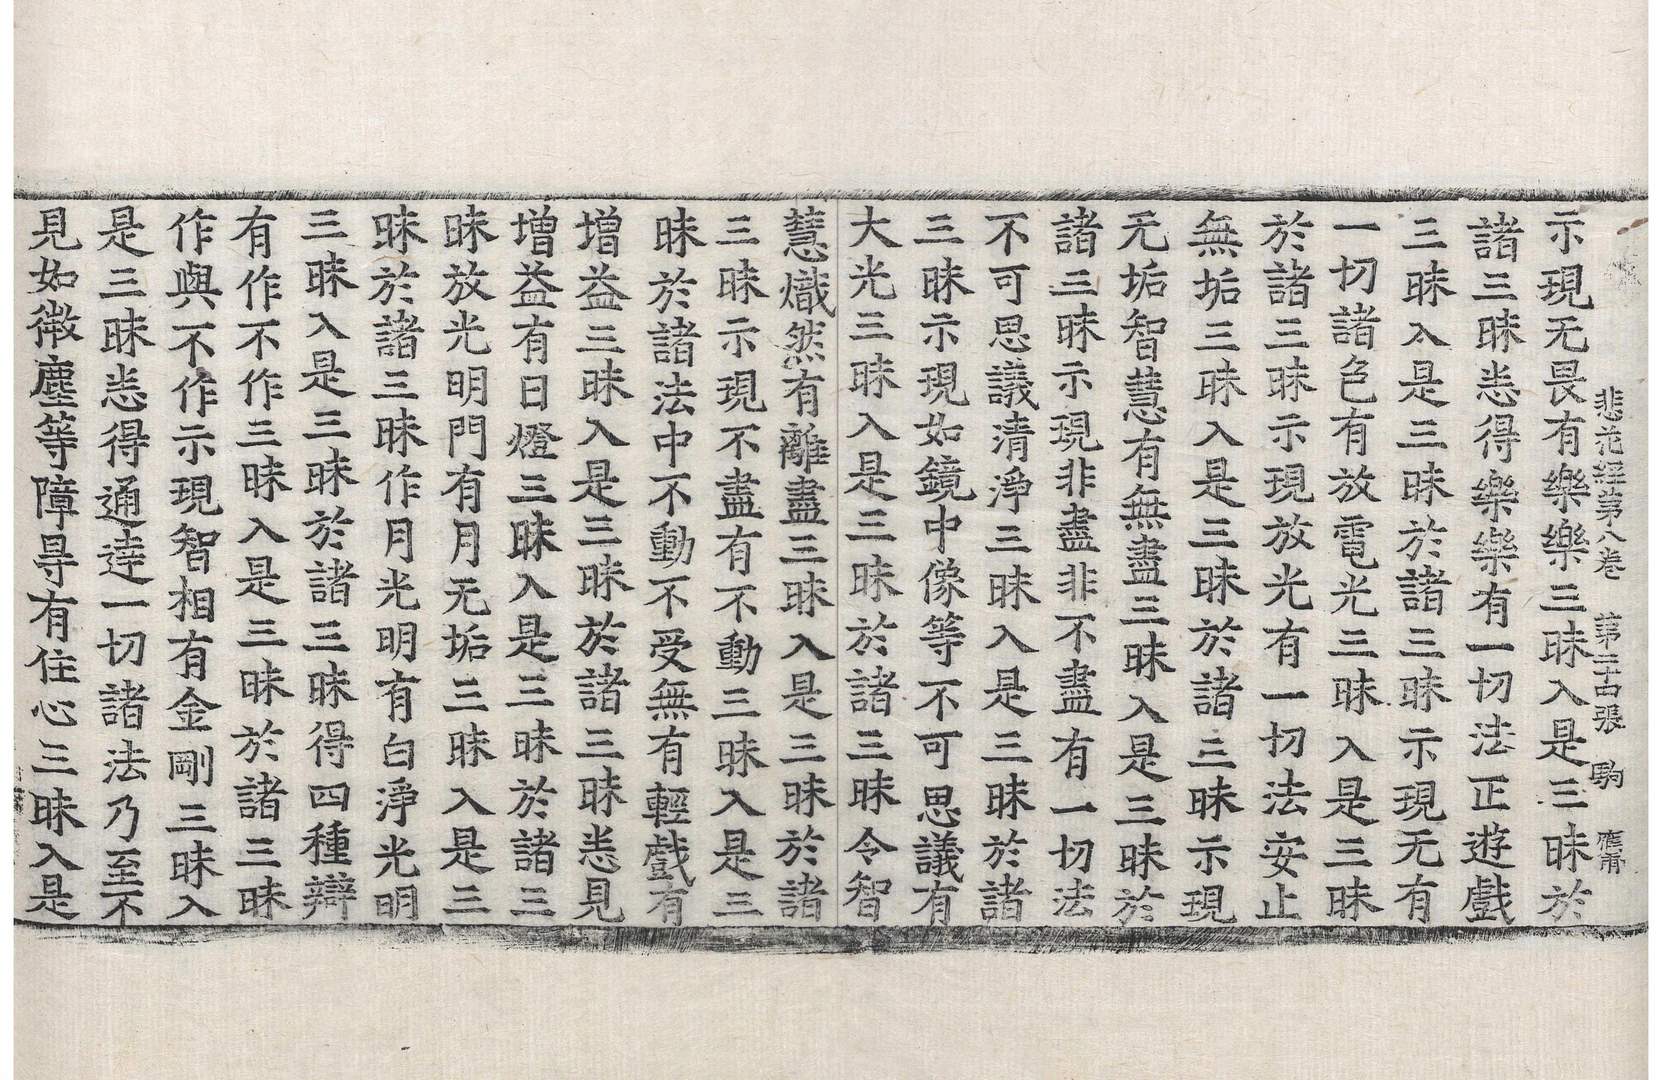 悲花経第八卷 第二十四張 駒
示現无畏有樂樂三昧入是三昧於
諸三昧悉得樂樂有一切法正遊戲
三昧入是三昧於諸三昧示現无有
一切諸色有放電光三昧入是三昧
於諸三昧示現放光有一切法安止
無垢三昧入是三昧於諸三昧示現
无垢智慧有無盡三昧入是三昧於
諸三昧示現非盡非不盡有一切法
不可思議清淨三昧入是三昧於諸
三昧示現如鏡中像等不可思議有
大光三昧入是三昧於諸三昧令智
慧熾然有離盡三昧入是三昧於諸
三昧示現不盡有不動三昧入是三
昧於諸法中不動不受無有輕戲有
增益三昧入是三昧於諸三昧悉見
增益有日燈三昧入是三昧於諸三
昧放光明門有月无垢三昧入是三
昧於諸三昧作月光明有白淨光明
三昧入是三昧於諸三昧得四種辯
有作不作三昧入是三昧於諸三昧
作與不作示現智相有金剛三昧入
是三昧悉得通達一切諸法乃至不
見如微塵等障㝵有住心三昧入是